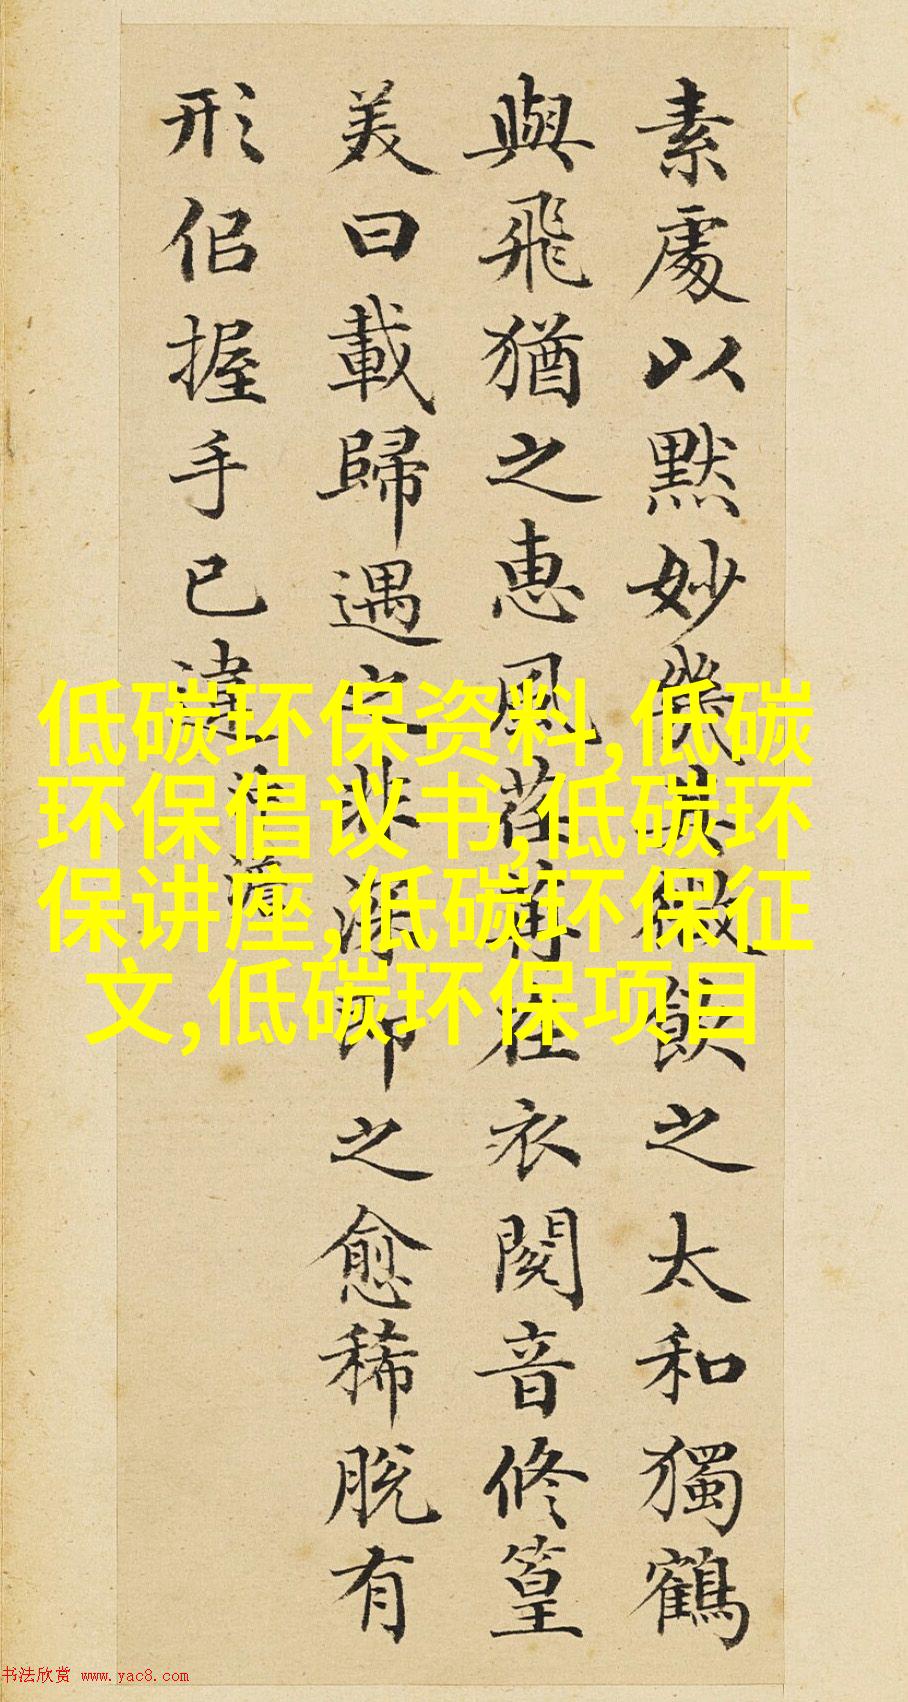 素處以默妙幾其微飲之太和獨鶴
與飛猶之惠風荏苒在衣閱音修篁
美曰載歸遇之非深即之愈稀脫有
形佀握手已違
沖澹
低碳环保资料,低碳
环保倡议书,低碳环
保讲座,低碳环保征
文,低碳环保项目
书法欣赏 www.yac8.com